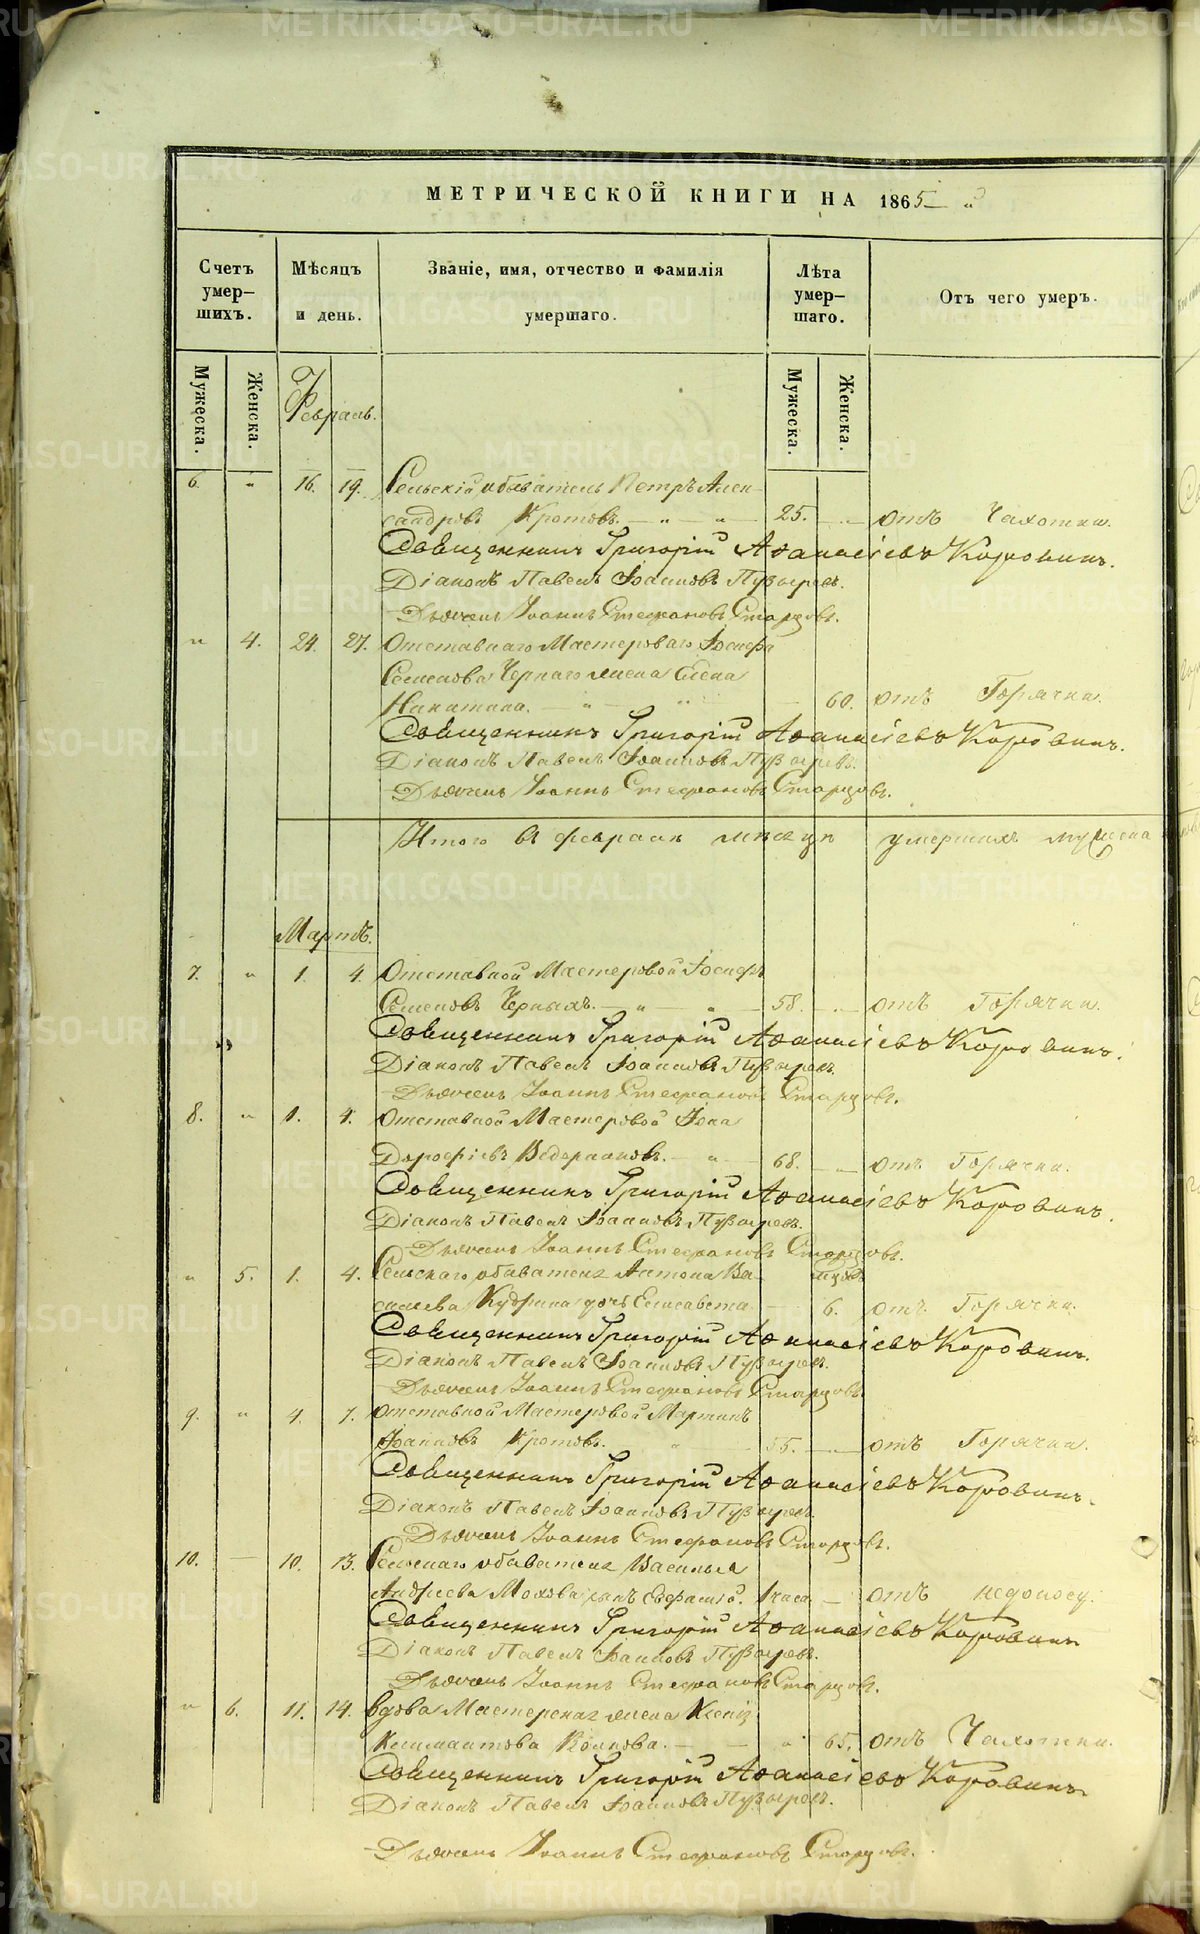 МЕТРИЧЕСКОЙ КНИГИ НА 1865
Счетъ умер-шихъ.
Мѣсяцъ и день.
Званіе, имя, отчество и фамилія умершаго.
Лѣта умер-шаго.
Отъ чего умеръ.
Мужеска. Женска.
Мужеска. Женска.
Февраль.
6. " 16. 19. Сельскій обыватель Петръ Алек-
сандровъ Кротовъ. 25. отъ Чахотки.
Священникъ Григорій Афанасіевъ Коровинъ.
Діаконъ Павелъ Іоанновъ Пузыревъ.
Дьячекъ Іоаннъ Стефановъ Старцовъ.
" 4. 24. 27. Отставнаго Мастероваго Іосифа
Семенова Чернаго жена Елена
Никитина. " " 60. отъ Горячки.
Священникъ Григорій Афанасіевъ Коровинъ.
Діаконъ Павелъ Іоанновъ Пузыревъ.
Дьячекъ Іоаннъ Стефановъ Старцовъ.
Итого въ февралѣ мѣсяцѣ умершихъ мужеска
Мартъ.
7. " 1. 4. Отставной Мастеровой Іосифъ
Семеновъ Черныхъ. " " 58. отъ Горячки.
Священникъ Григорій Афанасіевъ Коровинъ.
Діаконъ Павелъ Іоанновъ Пузыревъ.
Дьячекъ Іоаннъ Стефановъ Старцовъ.
8. " 1. 4. Отставной Мастеровой
Дорофіевъ Ведерниковъ. " 68. отъ Горячки.
Священникъ Григорій Афанасіевъ Коровинъ.
Діаконъ Павелъ Іоанновъ Пузыревъ.
Дьячекъ Іоаннъ Стефановъ Старцовъ.
" 5. 1. 4. Сельскаго обывателя Антона Ва-
сильева Кудрина дочь Елисавета 6. отъ Горячки.
Священникъ Григорій Афанасіевъ Коровинъ.
Діаконъ Павелъ Іоанновъ Пузыревъ.
Дьячекъ Іоаннъ Стефановъ Старцовъ.
9. " 4. 7. Отставной Мастеровой Мартинъ
Іоанновъ Кротовъ. " 55. отъ Горячки.
Священникъ Григорій Афанасіевъ Коровинъ.
Діаконъ Павелъ Іоанновъ Пузыревъ.
Дьячекъ Іоаннъ Стефановъ Старцовъ.
10. 10. 13. Сельскаго обывателя Василья
Андреева Мохова сынъ Евфимій. 1 часа отъ недоносу.
Священникъ Григорій Афанасіевъ Коровинъ
Діаконъ Павелъ Іоанновъ Пузыревъ.
Дьячекъ Іоаннъ Стефановъ Старцовъ.
" 6. 11. 14. вдова Мастерская жена
Климантова Волкова. " 65. отъ Чахотки.
Священникъ Григорій Афанасіевъ Коровинъ
Діаконъ Павелъ Іоанновъ Пузыревъ.
Дьячекъ Іоаннъ Стефановъ Старцовъ.
METRIKI.GASO-URAL.RU